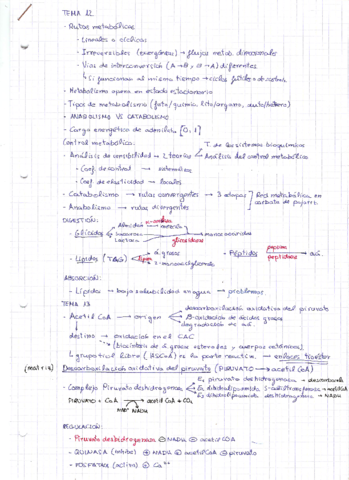 TEMA 12
- Rutas metabólicas
- Lineales o cíclicas
- Irreversibles (exergónicas) → flujos metab. direccionales
- Vías de interconversión (A→B, B→A) diferentes
↳ si funcionan al mismo tiempo → ciclos fútiles o de sustrato
- Metabolismo opera en estado estacionario
- Tipos de metabolismo (foto/quimio, lito/organo, auto/hetero)
- ANABOLISMO VS CATABOLISMO
- Carga energética de adenilato [0,1]
Control metabólico:
- Análisis de sensibilidad → 2 teorías
T. de los sistemas bioquímicos
Análisis del control metabólico
- Coef. de control → sistémicos
- Coef. de elasticidad → locales
- Catabolismo → rutas convergentes → 3 etapas
Red metabólica en
- Anabolismo → rutas divergentes
DIGESTIÓN:
- Glúcidos
Almidón
Sacarosa
Lactosa
monosacáridos
glicosidasas
- Lípidos (TAG)
ác. grasos
2-monoacilglicerol
- Péptidos
pepsina
peptidasas
ABSORCIÓN:
- Lípidos → baja solubilidad en agua → problemas
TEMA 13
- Acetil CoA → origen
descarboxilación oxidativa del piruvato
β-oxidación de ácidos grasos
degradación de aa.
destino → oxidación en el CAC
(biosíntesis de ác. grasos esteroides y cuerpos cetónicos)
↳ grupo tiol libre (HSCoA) es la parte reactiva → enlaces tioéster
(matriz) Descarboxilación oxidativa del piruvato (PIRUVATO → acetil CoA)
- Complejo Piruvato deshidrogenasa
E1 piruvato deshidrogenasa → descarboxila
E2 dihidrolipoamida S-acetiltransferasa → acetil CoA
E3 dihidrolipoamida deshidrogenasa → NADH
PIRUVATO + CoA → acetil CoA + CO2
NAD+ NADH
REGULACIÓN:
- Piruvato deshidrogenasa ⊖ NADH ⊖ acetil CoA
- QUINASA (inhibe) ⊕ NADH ⊕ acetil CoA ⊖ piruvato
- FOSFATASA (activa) ⊕ Ca2+